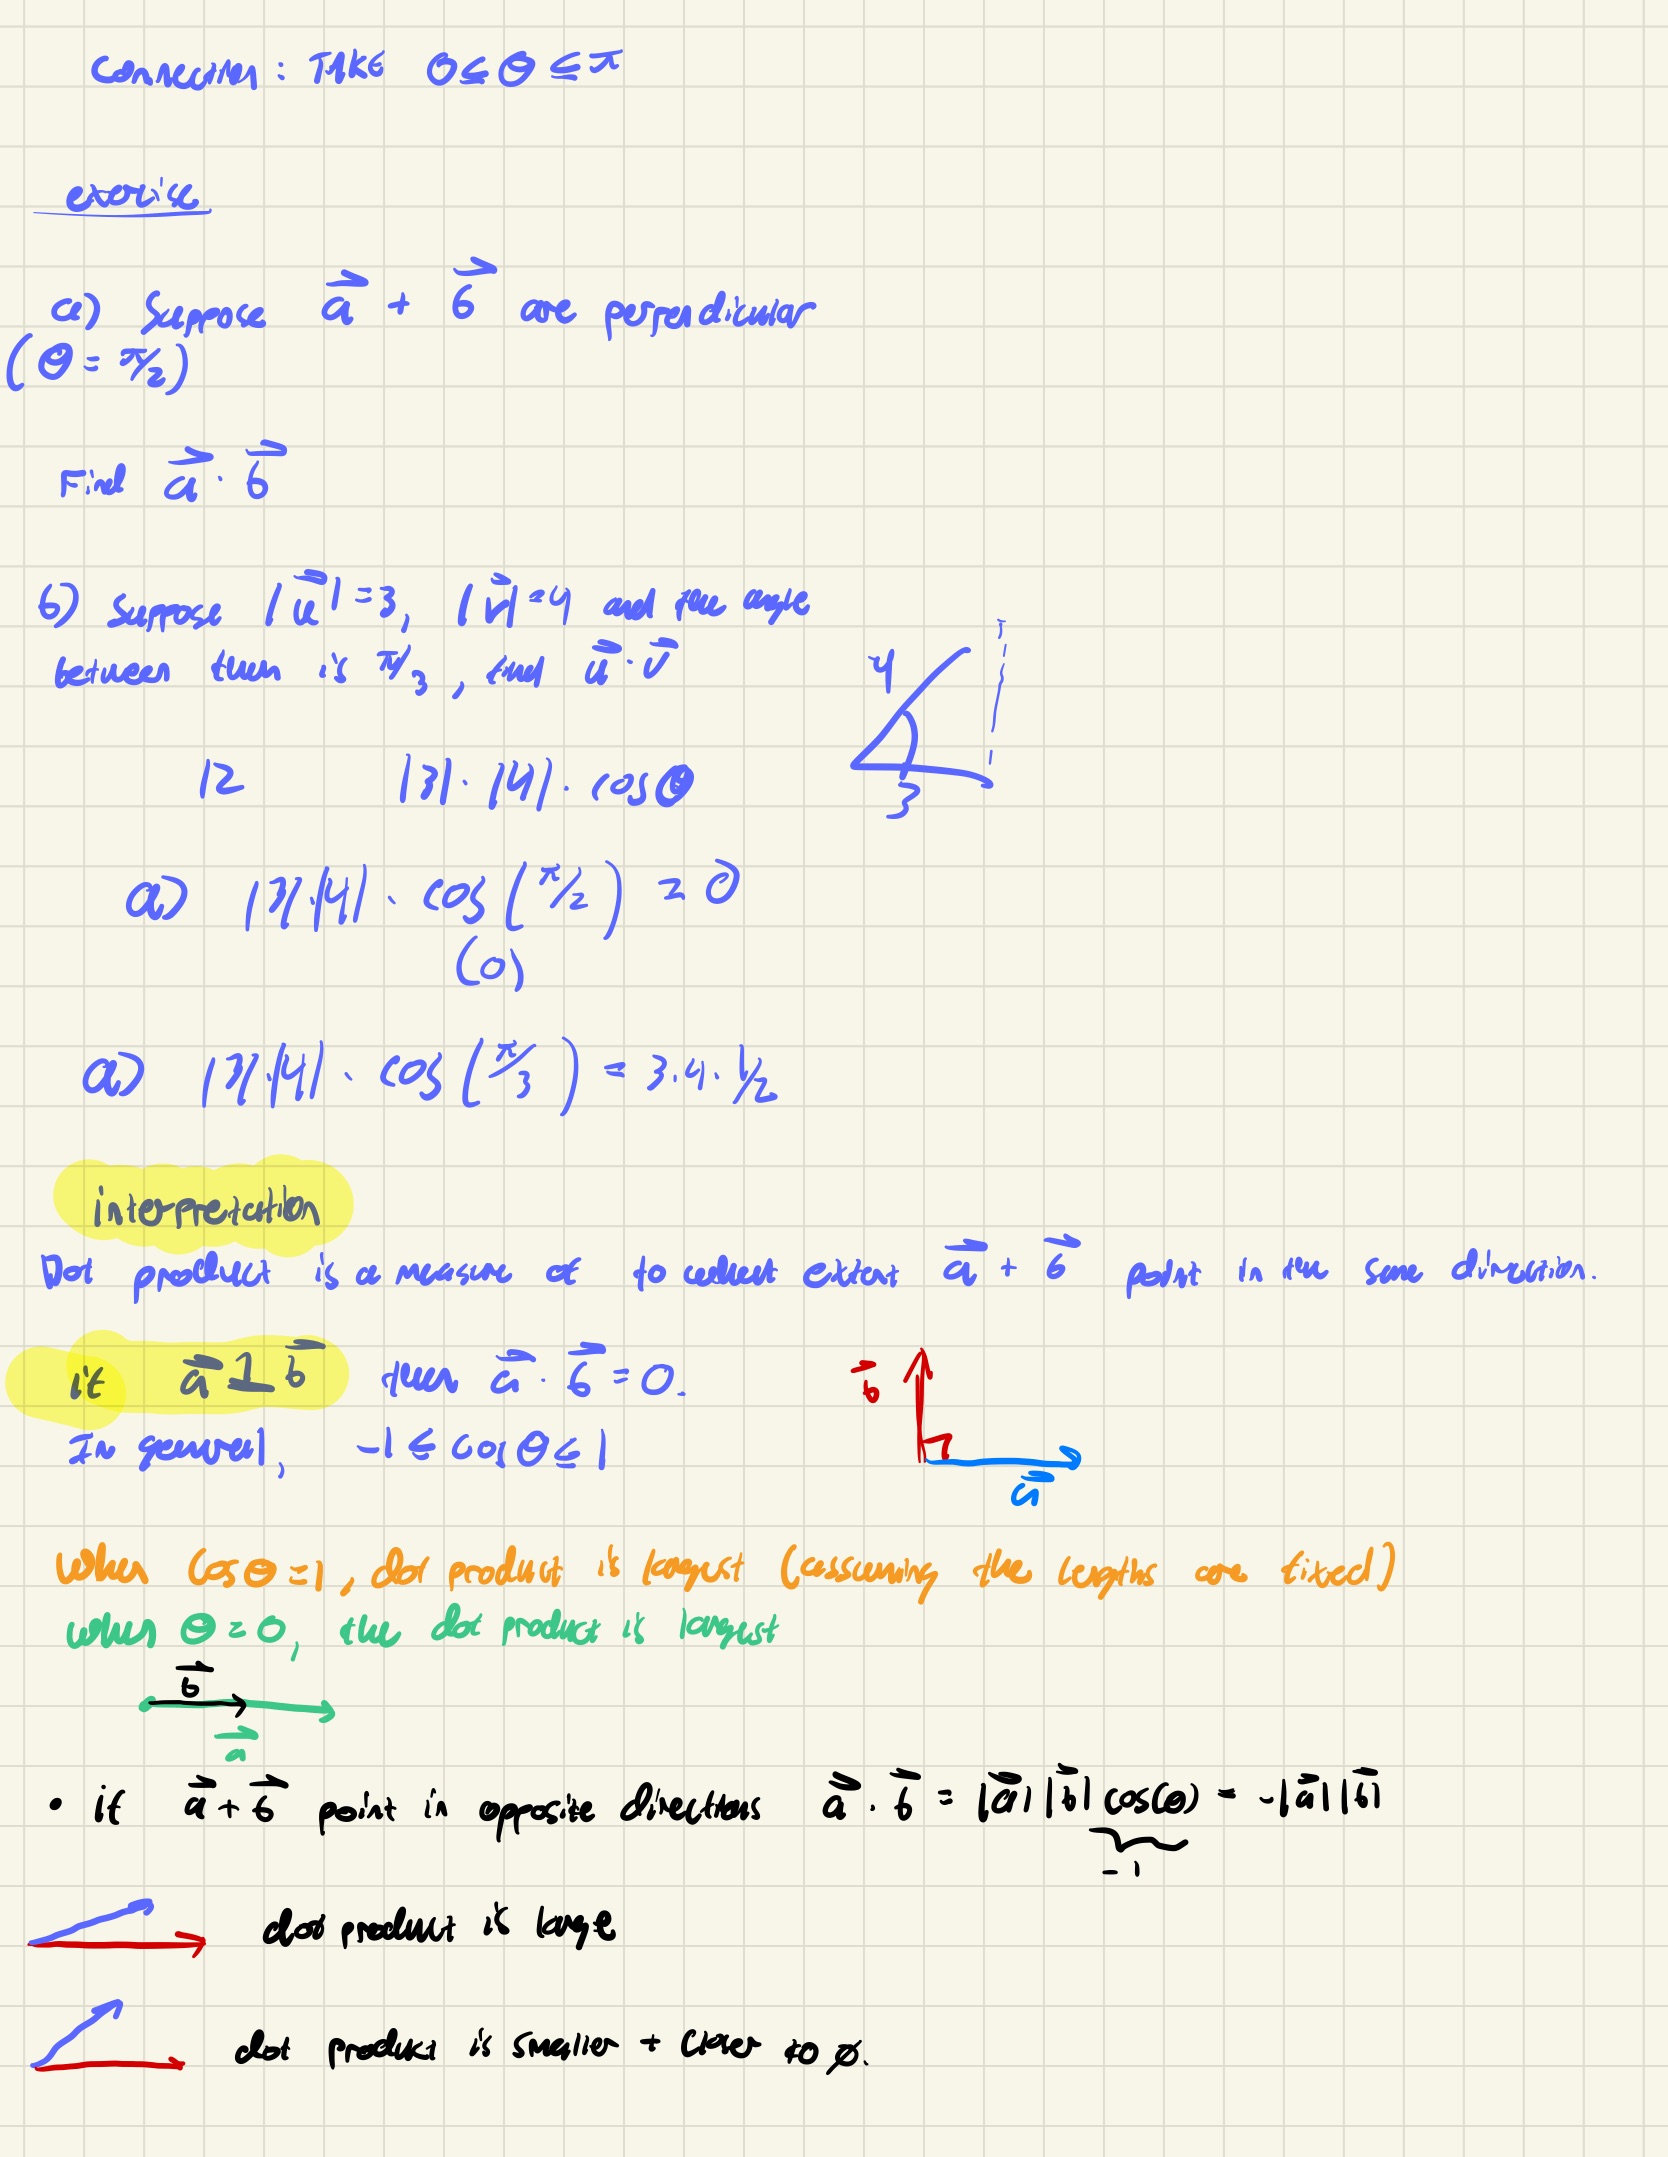 Connection: TAKE 0 ≤ θ ≤ π
exercise
a) Suppose a⃗ + b⃗ are perpendicular
(θ = π/2)
Find a⃗ · b⃗
b) Suppose |u⃗| = 3, |v⃗| = 4 and the angle
between them is π/3, find u⃗ · v⃗
4
3
12 |3| · |4| · cos θ
a) |3| · |4| · cos(π/2) = 0
(0)
a) |3| · |4| · cos(π/3) = 3 · 4 · 1/2
interpretation
Dot product is a measure of to what extent a⃗ + b⃗ point in the same direction.
if a⃗ ⊥ b⃗ then a⃗ · b⃗ = 0.
b⃗
In general, -1 ≤ cos θ ≤ 1
a⃗
When cos θ = 1, dot product is largest (assuming the lengths are fixed)
when θ = 0, the dot product is largest
b⃗
a⃗
• if a⃗ + b⃗ point in opposite directions a⃗ · b⃗ = |a⃗| |b⃗| cos(θ) = -|a⃗| |b⃗|
-1
dot product is large
dot product is smaller + closer to 0.